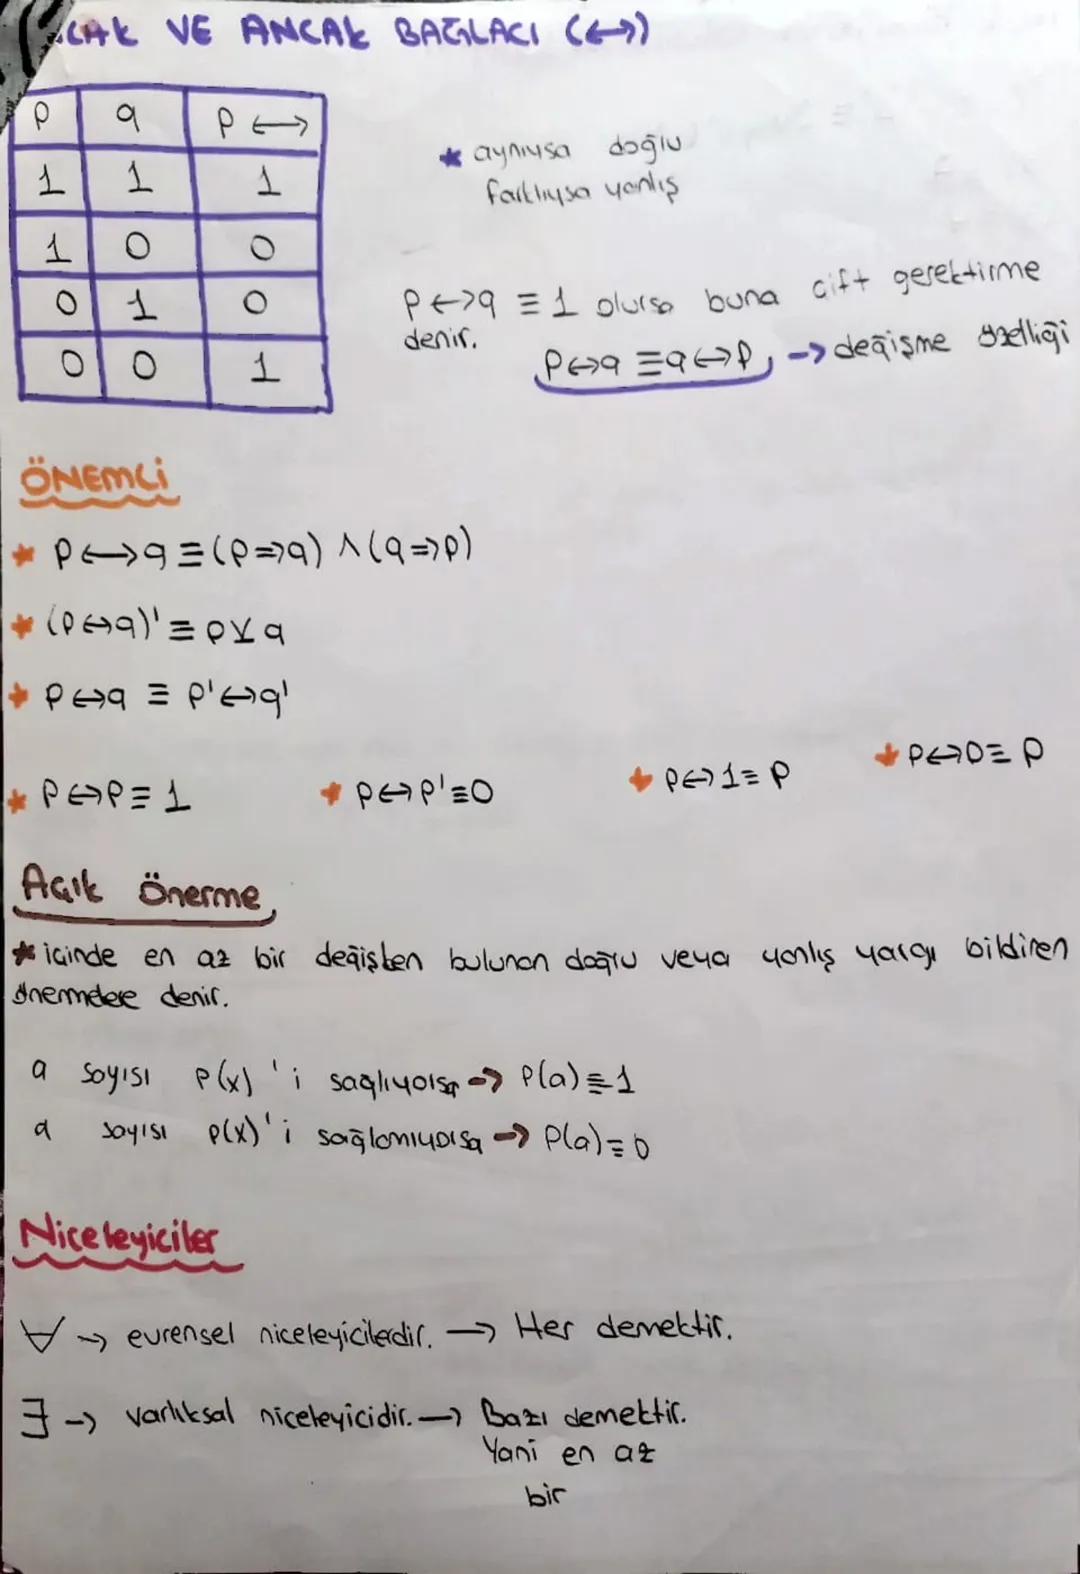 CAK VE ANCAK BAĞLACI (↔)
p q p ↔
1 1 1
1 0 0
0 1 0
0 0 1
* aynıysa doğru
farklıysa yanlış
p↔q ≡ 1 olursa buna çift gerektirme
denir.
p↔q ≡ q↔p → değişme özelliği
ÖNEMLİ
* p↔q ≡ (p⇒q) ∧ (q⇒p)
* (p↔q)' ≡ p⊻q
* p↔q ≡ p'↔q'
* p↔p ≡ 1 * p↔p' ≡ 0 * p↔1 ≡ p * p↔0 ≡ p
Açık Önerme
* içinde en az bir değişken bulunan doğru veya yanlış yargı bildiren
önermelere denir.
a sayısı p(x)'i sağlıyorsa → p(a) ≡ 1
a sayısı p(x)'i sağlamıyorsa → p(a) ≡ 0
Niceleyiciler
∀ → evrensel niceleyicilerdir. → Her demektir.
∃ → varlıksal niceleyicidir. → Bazı demektir.
Yani en az
bir